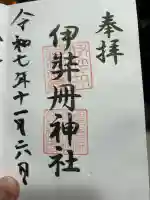 奉拝
伊弉冊神社
令和七年十一月六日